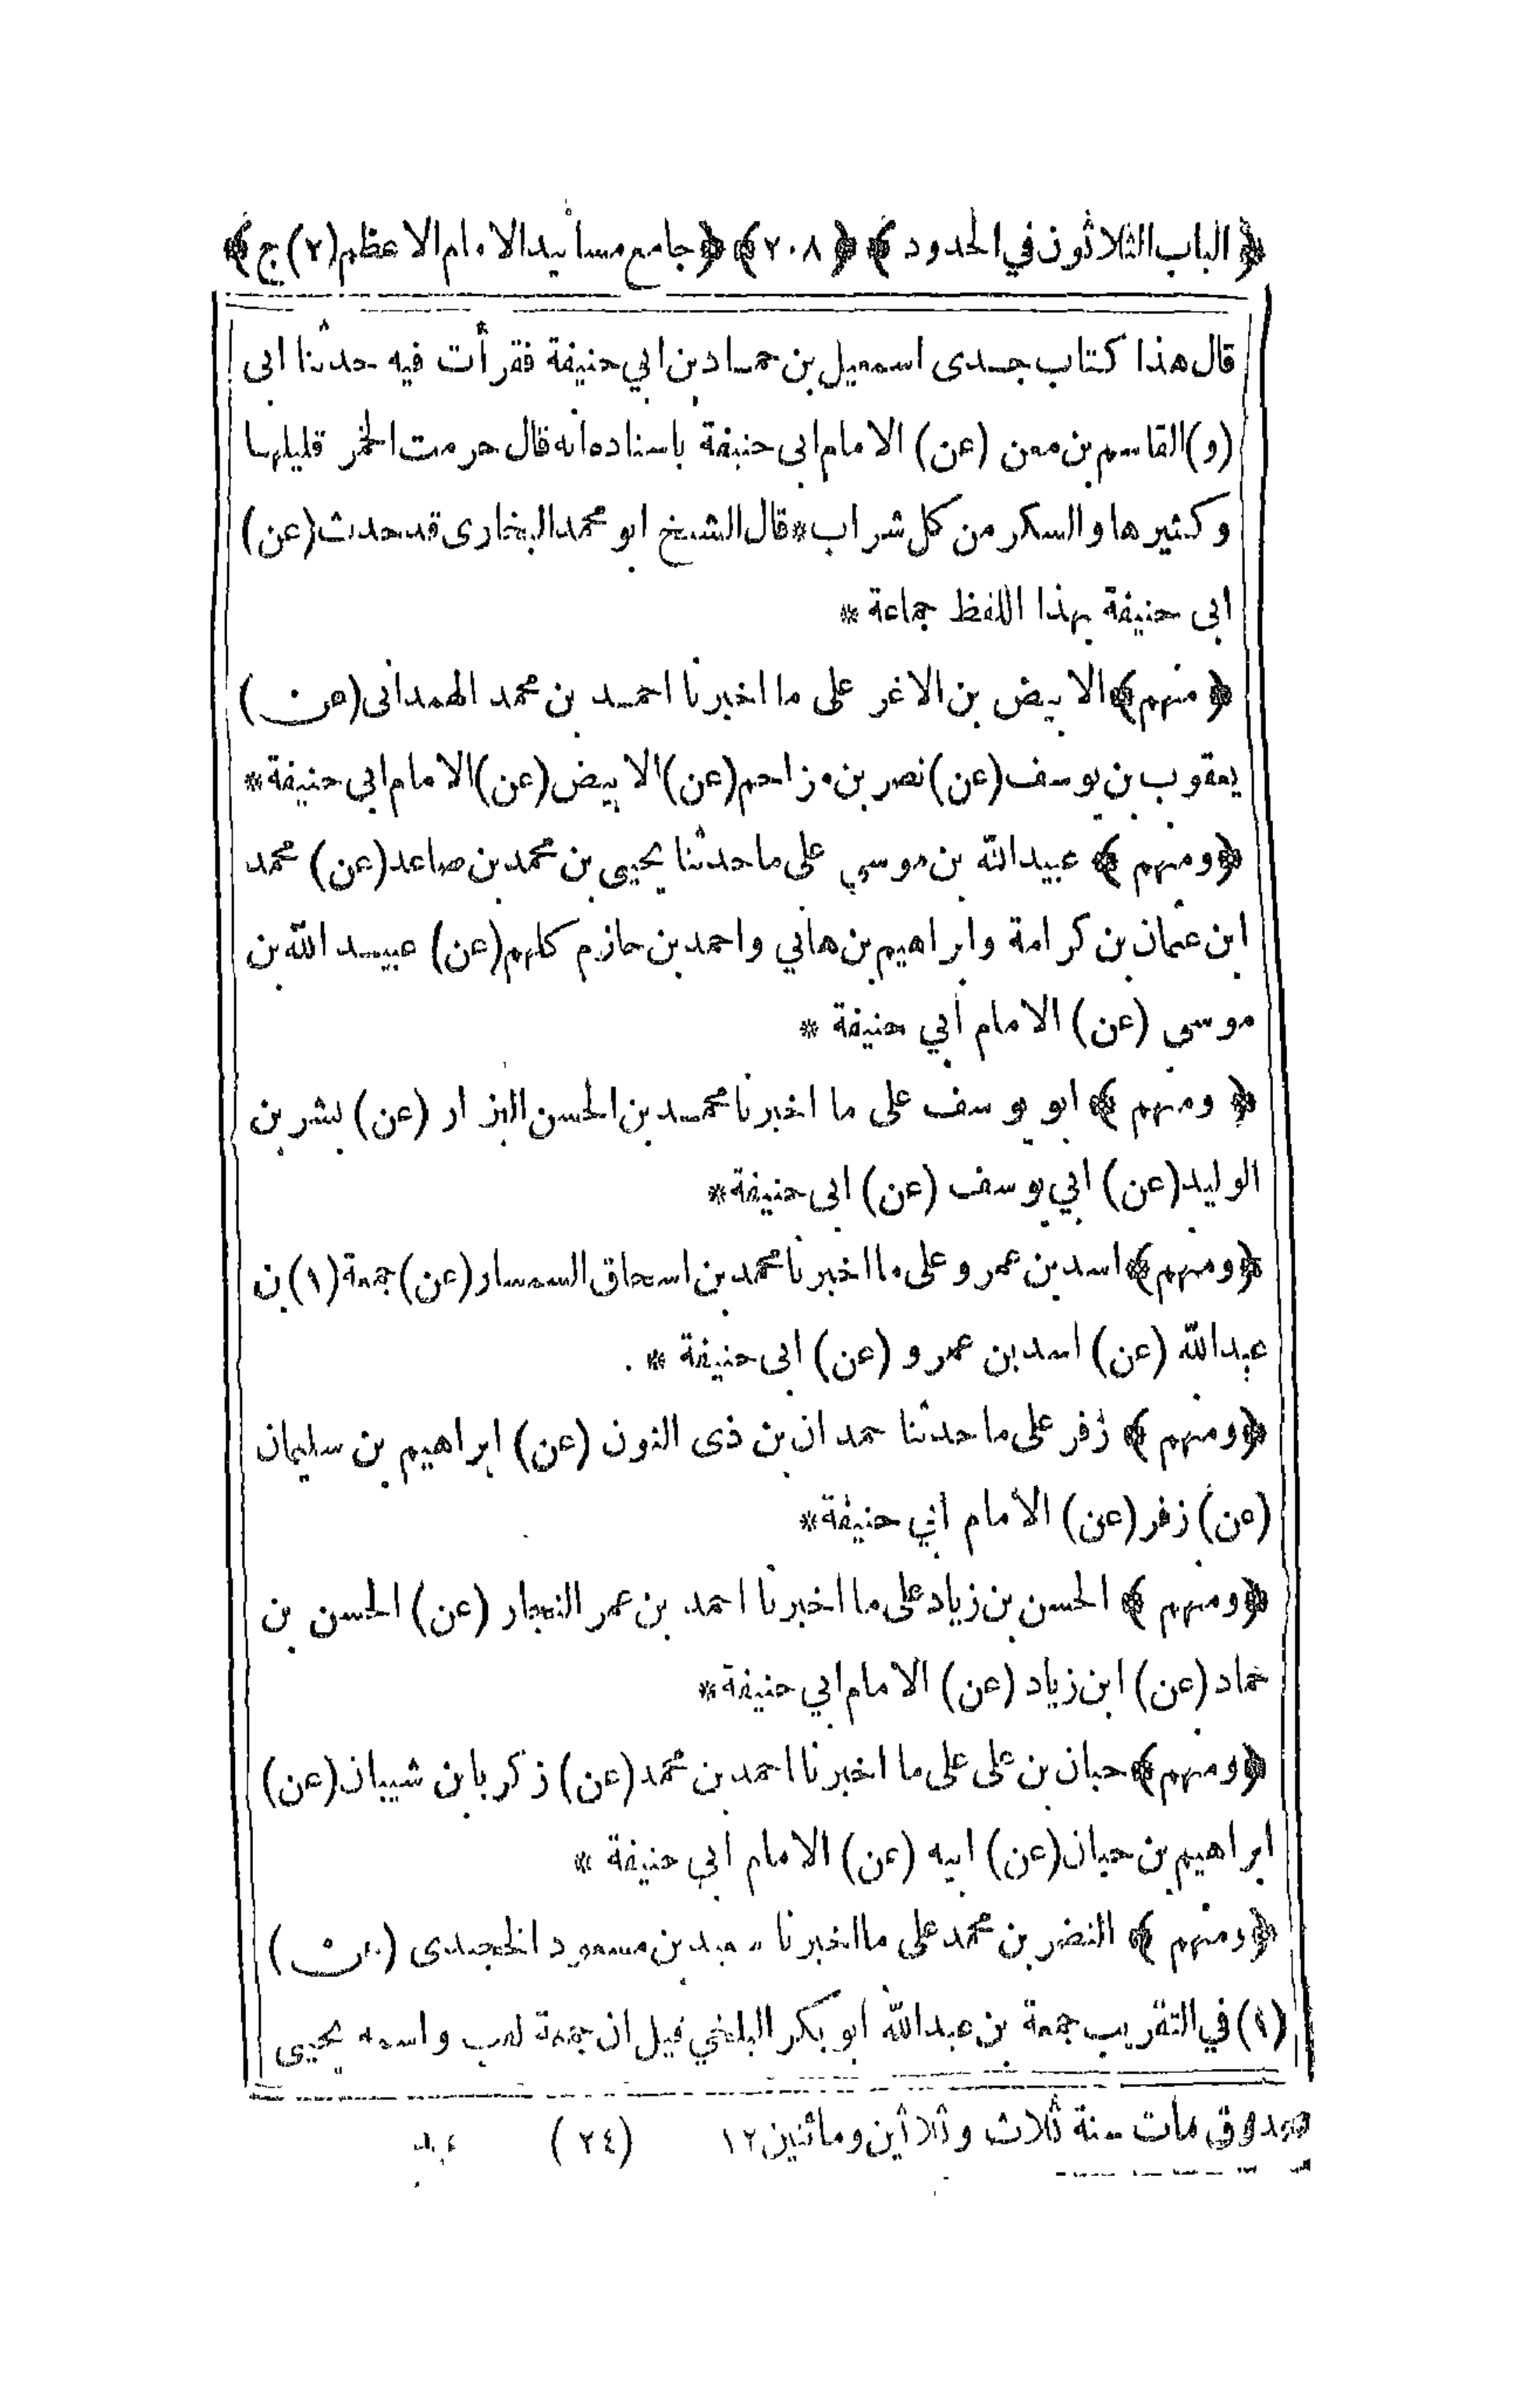 ﴿الباب الثلاثون في الحدود﴾ ﴿٢٠٨﴾ ﴿جامع مسانيد الامام الاعظم (٢) ج﴾
قال هذا كتاب جدى اسمعيل بن حماد بن ابي حنيفة فقرأت فيه حدثنا ابى
(و) القاسم بن معن (عن) الامام ابى حنيفة باسناده انه قال حرمت الخمر قليلها
وكثيرها والسكر من كل شراب * قال الشيخ ابو محمد البخارى قد حدث (عن)
ابى حنيفة بهذا اللفظ جماعة *
﴿منهم﴾ الابيض بن الاغر على ما اخبرنا احمد بن محمد الهمدانى (عن)
يعقوب بن يوسف (عن) نصر بن مزاحم (عن) الابيض (عن) الامام ابى حنيفة *
﴿ومنهم﴾ عبيدالله بن موسي على ما حدثنا يحيى بن محمد بن صاعد (عن) محمد
ابن عثمان بن كرامة وابراهيم بن هاني واحمد بن حازم كلهم (عن) عبيد الله بن
موسى (عن) الامام أبي حنيفة *
﴿ومنهم﴾ ابو يوسف على ما اخبرنا محمد بن الحسن البزار (عن) بشر بن
الوليد (عن) ابي يوسف (عن) ابى حنيفة *
﴿ومنهم﴾ اسد بن عمرو على ما اخبرنا محمد بن اسحاق السمسار (عن) جمعة (١) بن
عبدالله (عن) اسد بن عمرو (عن) ابى حنيفة *
﴿ومنهم﴾ زفر على ما حدثنا حمدان بن ذى النون (عن) ابراهيم بن سليمان
(عن) زفر (عن) الامام ابي حنيفة *
﴿ومنهم﴾ الحسن بن زياد على ما اخبرنا احمد بن عمر النجار (عن) الحسن بن
حماد (عن) ابن زياد (عن) الامام ابي حنيفة *
﴿ومنهم﴾ حبان بن على على ما اخبرنا احمد بن محمد (عن) زكريا بن شيبان (عن)
ابراهيم بن حبان (عن) ابيه (عن) الامام ابي حنيفة *
﴿ومنهم﴾ النضر بن محمد على ما اخبرنا بن مسعود الخجندى (عن)
(١) في التقريب جمعة بن عبدالله ابو بكر البلخي قيل ان جمعة لقب واسمه يحيى
صدوق مات سنة ثلاث وثلاثين ومائتين ١٢ (٢٤)